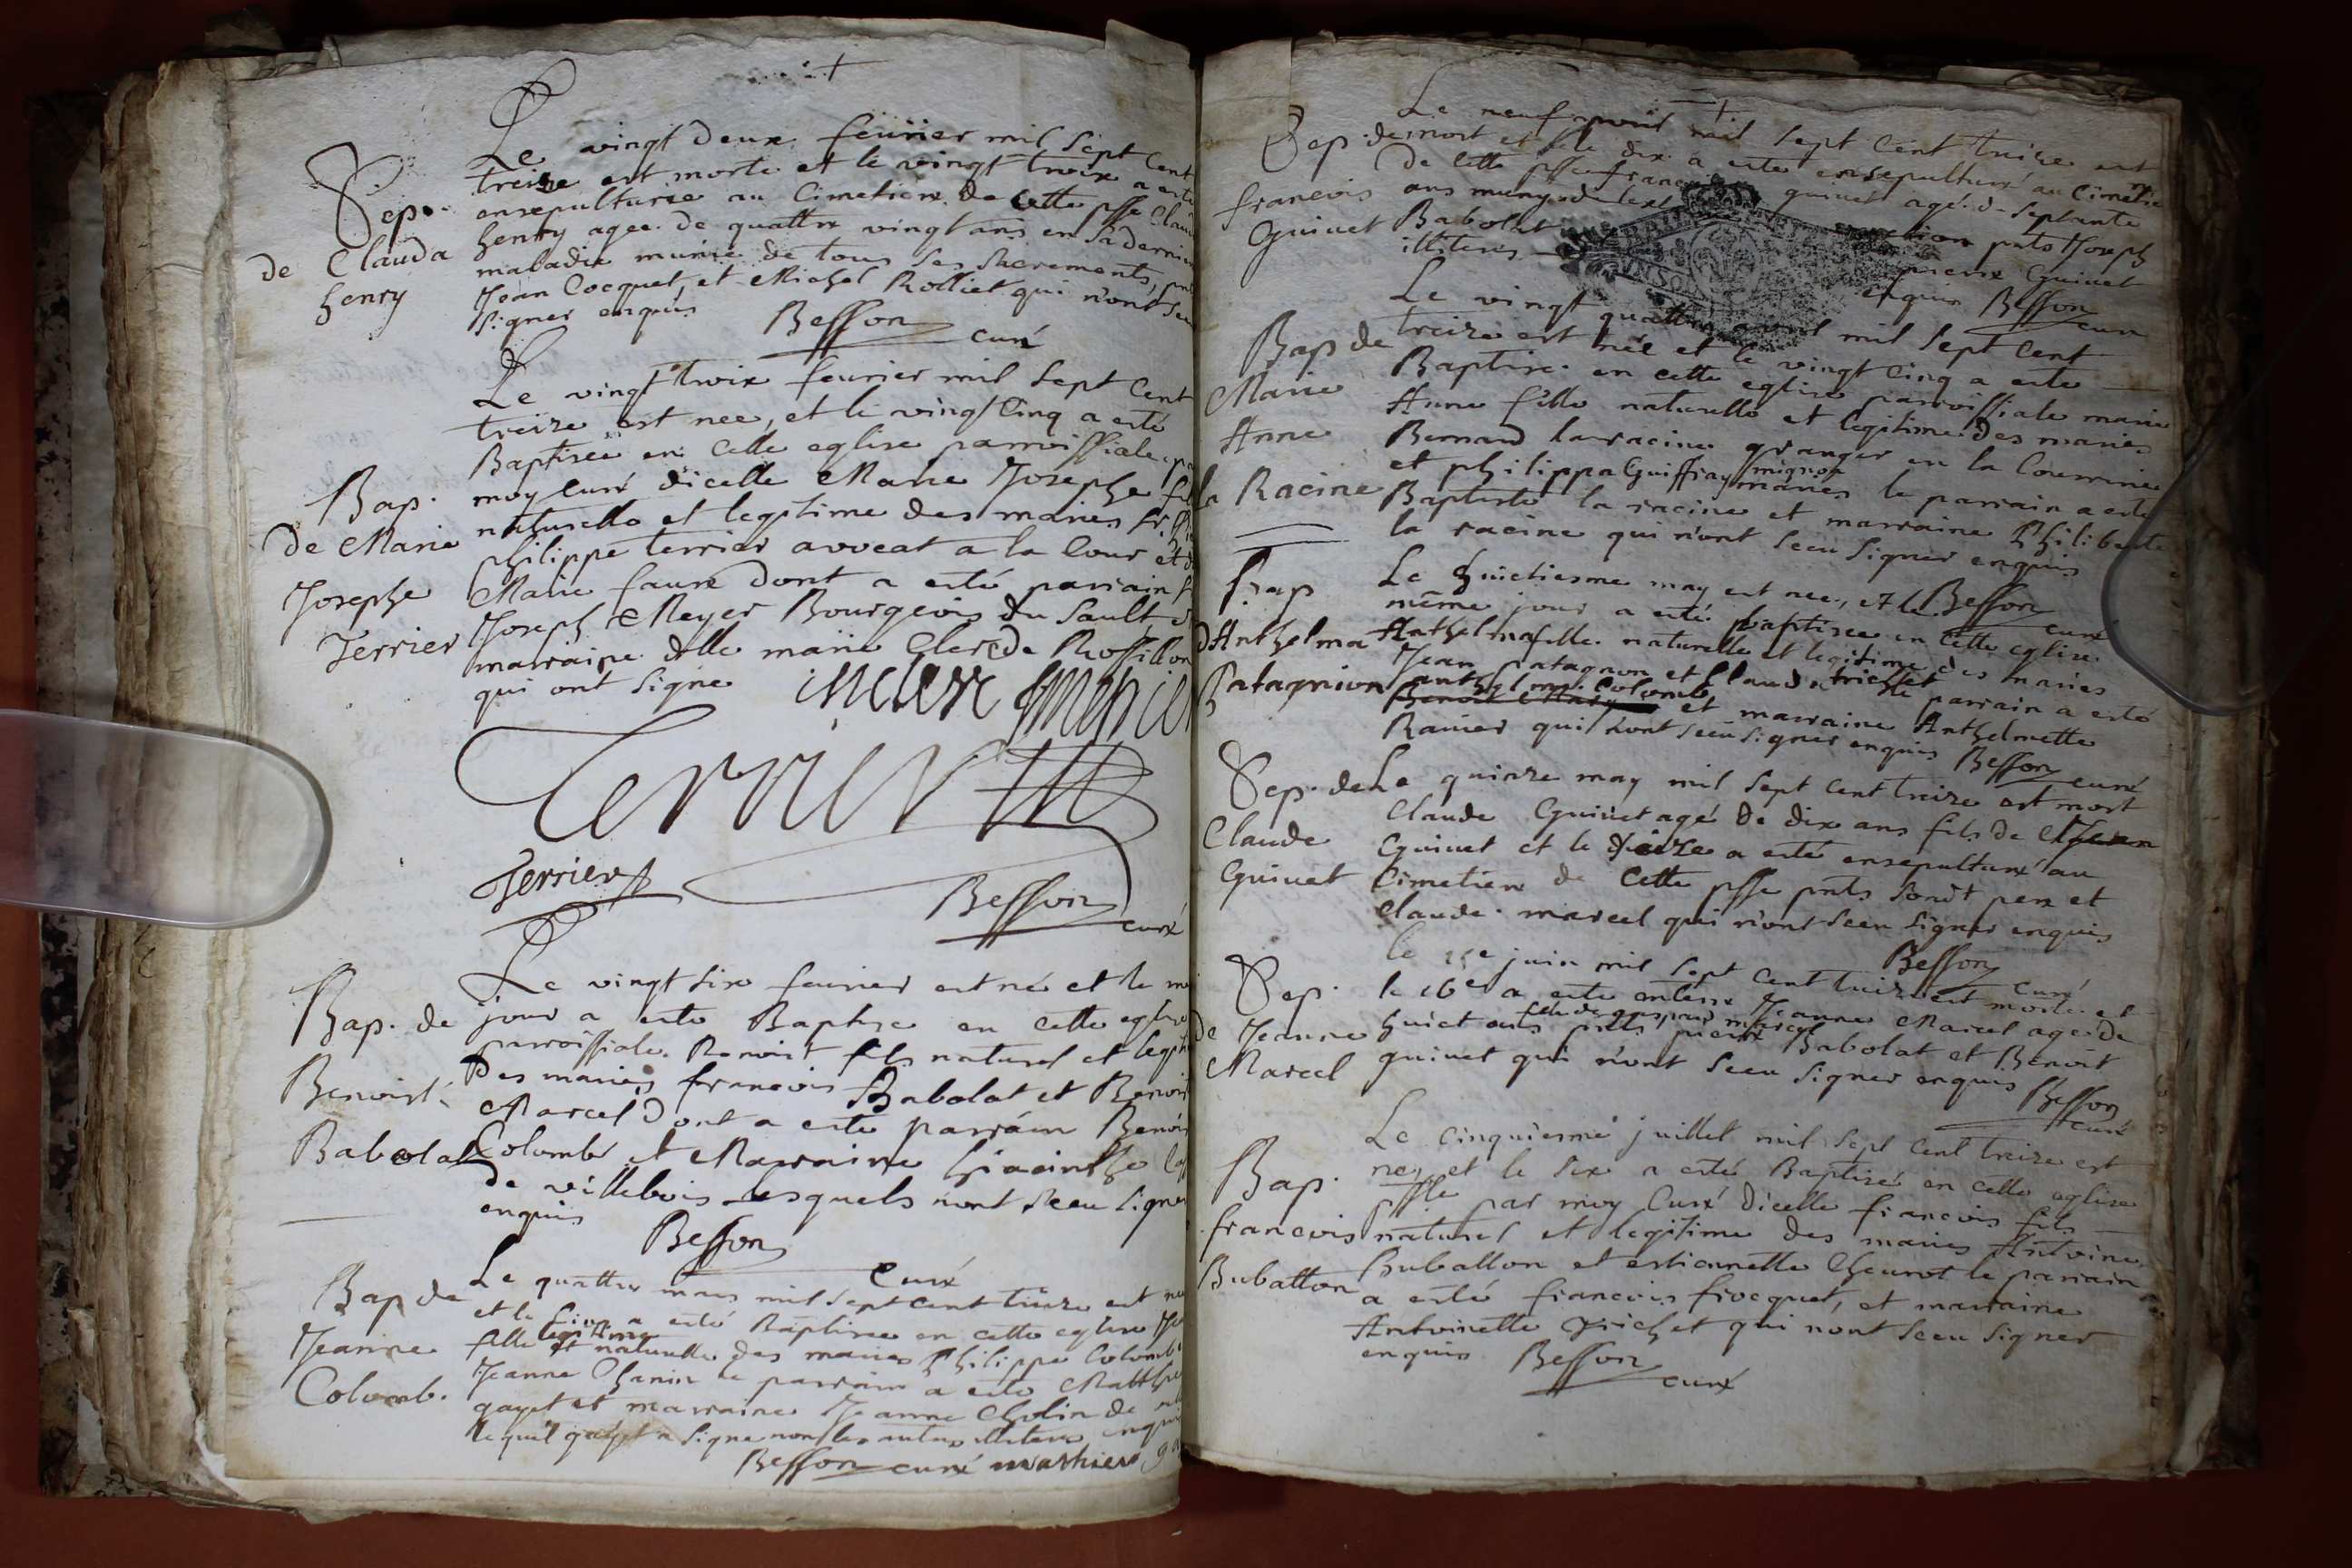 Le vingt deux feurier mil sept cent
treize est morte et le vingt trois a esté
ensepulturée au Cimetiere de cette psse Claud
henry agee de quattre vingt ans en sa dernier
maladie munie de tous ses sacrements,
Jean Cocquet, et Michel Rolliet qui n'ont sceu
signer enquis
Besson curé
Sep.
de Clauda
henry
Le vingt trois feurier mil sept cent
treize est nee, et le vingt cinq a esté
Baptisée en cette eglise parroissiale
moy curé dicelle Marie Josephe
naturelle et legitime des maries
philippe terrier avocat a la Cour et
Marie faure dont a esté parrain
Joseph Meyer Bourgeois du Sault
marraine dlle marie Clerc de Rossillon
qui ont signe
Bap.
de Marie
Josephe
Terrier
Terrier
Terrier
Besson curé
Le vingt six feurier est né et le
jour a esté Baptisé en cette eglise
parroissiale Benoist fils naturel et legiti
Des maries francois Babolat et Benoist
Marcel dont a este parrain Benoi
Colombe et Marraine hiacinthe
de villebois lesquels n'ont sceu signer
enquis
Besson curé
Bap. de
Benoist
Babolat
Le quattre mars mil sept cent treize est nee
et le cinq a esté Baptisee en cette eglise
fille legitime et naturelle des maries Philippe Colomb
Jeanne Chanin le parrain a esté Matthieu
gayet et marraine Jeanne Cholin de
lequel gayet a signe non les autres illiteres
Besson curé mathieu
Bap de
Jeanne
Colomb.
Le neuf avril mil sept cent treize est
mort et le dix a esté ensepulturé au Cimetie
de cette psse francois guinet agé de septante
ans muny de lext onction pnts Joseph
Babolat pierre Guinet
illiteres enquis Besson curé
Sep. de
francois
Guinet
Le vingt quattre avril mil sept cent
treize est née et le vingt cinq a esté
Baptisé en cette eglise parroissiale marie
Anne fille naturelle et legitime des maries
Bernard la racine granger en la Courrinie
et philippa Guiffray mignon maries le parrain a esté
Baptiste la racine et marraine Philiberte
la racine qui n'ont sceu signer enquis
Besson curé
Bap de
Marie
Anne
la Racine
Le huictiesme may est nee, et le
même jour a esté baptisee en cette eglise
Anthelma fille naturelle et legitime des maries
Jean patagnon et Clauda trichet le parrain a esté
anthelme Colomb et marraine Anthelmette
Ranier qui n'ont sceu signer enquis Besson curé
Bap
d'Anthelma
Patagnion
Le quinze may mil sept cent treize est mort
Claude Guinet agé de dix ans fils de Jean
Guinet et le seize a esté ensepulturé au
Cimetiere de cette psse pnts sondt pere et
Claude marcel qui n'ont sceu signer enquis
Besson curé
Sep. de
Claude
Guinet
le 15e juin mil sept cent treize est morte et
le 16e a este enterré Jeanne Marcel agee de
fille de gaspard marcel
huict ans pnts pierre Babolat et Benoit
guinet qui n'ont sceu signer enquis
Besson curé
Sep.
de Jeanne
Marcel
Le cinquiesme juillet mil sept cent treize est
ne, et le six a esté Baptisé en cette eglise
pssle par moy Curé dicelle francois fils
naturel et legitime des maries Antoine
Buballon et estiennette Cheurot le parrain
a esté francois fiocquet, et marraine
Antoinette trichet qui n'ont sceu signer
enquis Besson curé
Bap.
francois
Buballon